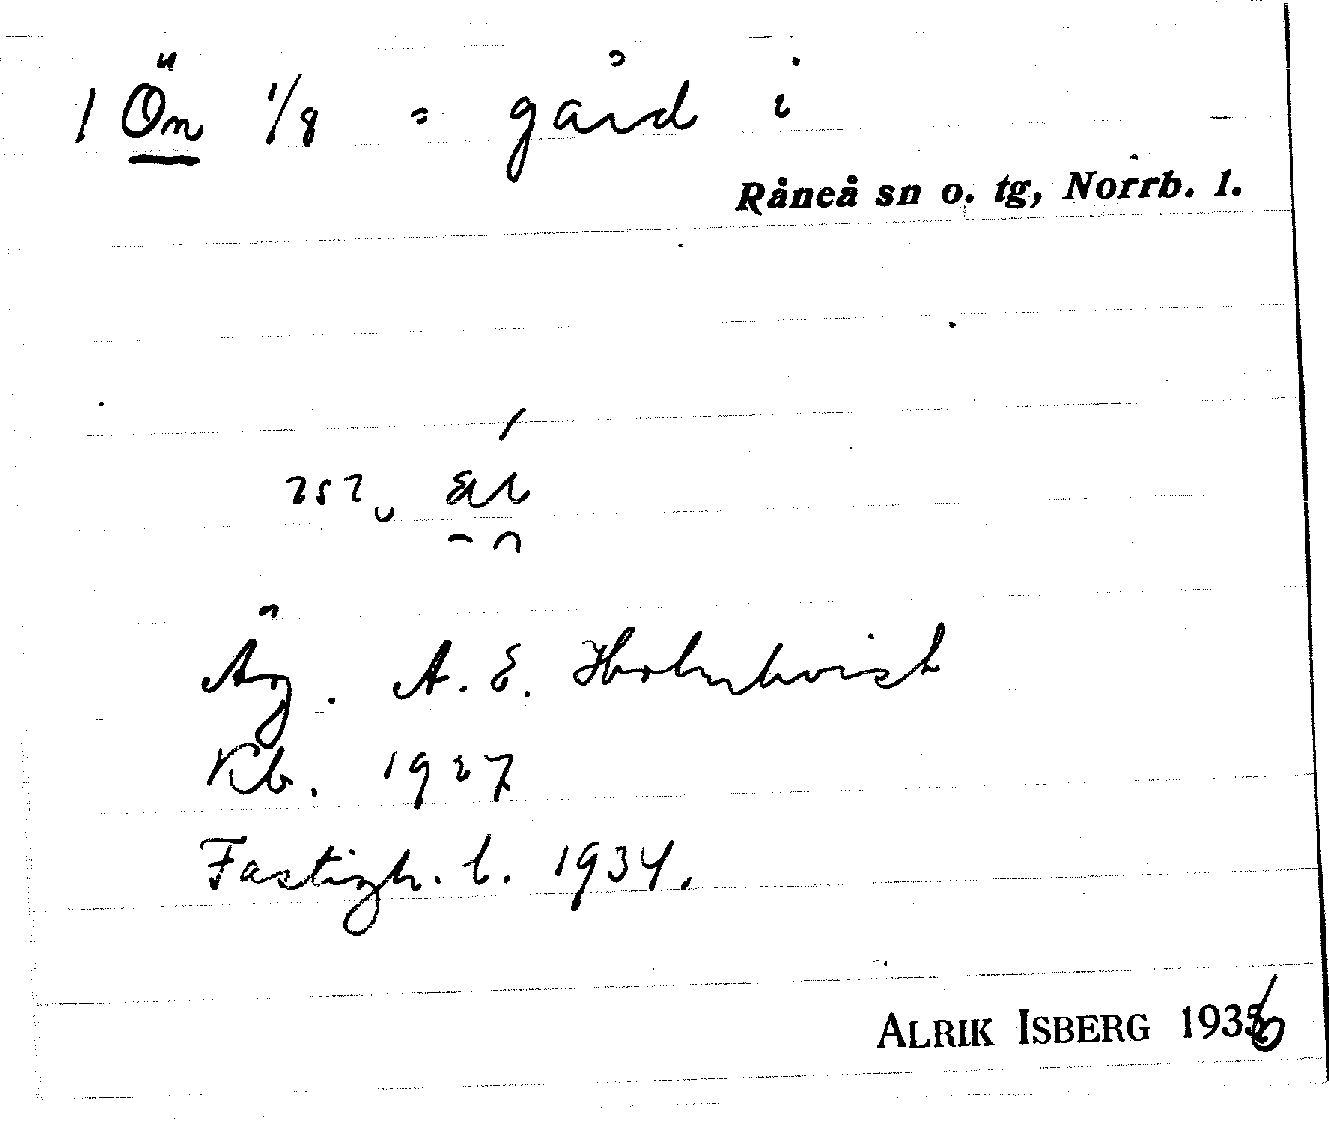 1 Ön 1/8 = gård i
Råneå sn o. tg, Norrb. l.
Äg. A. E. Holmkvist
Kb. 1927
Fastigh. l. 1934.
ALRIK ISBERG 1936